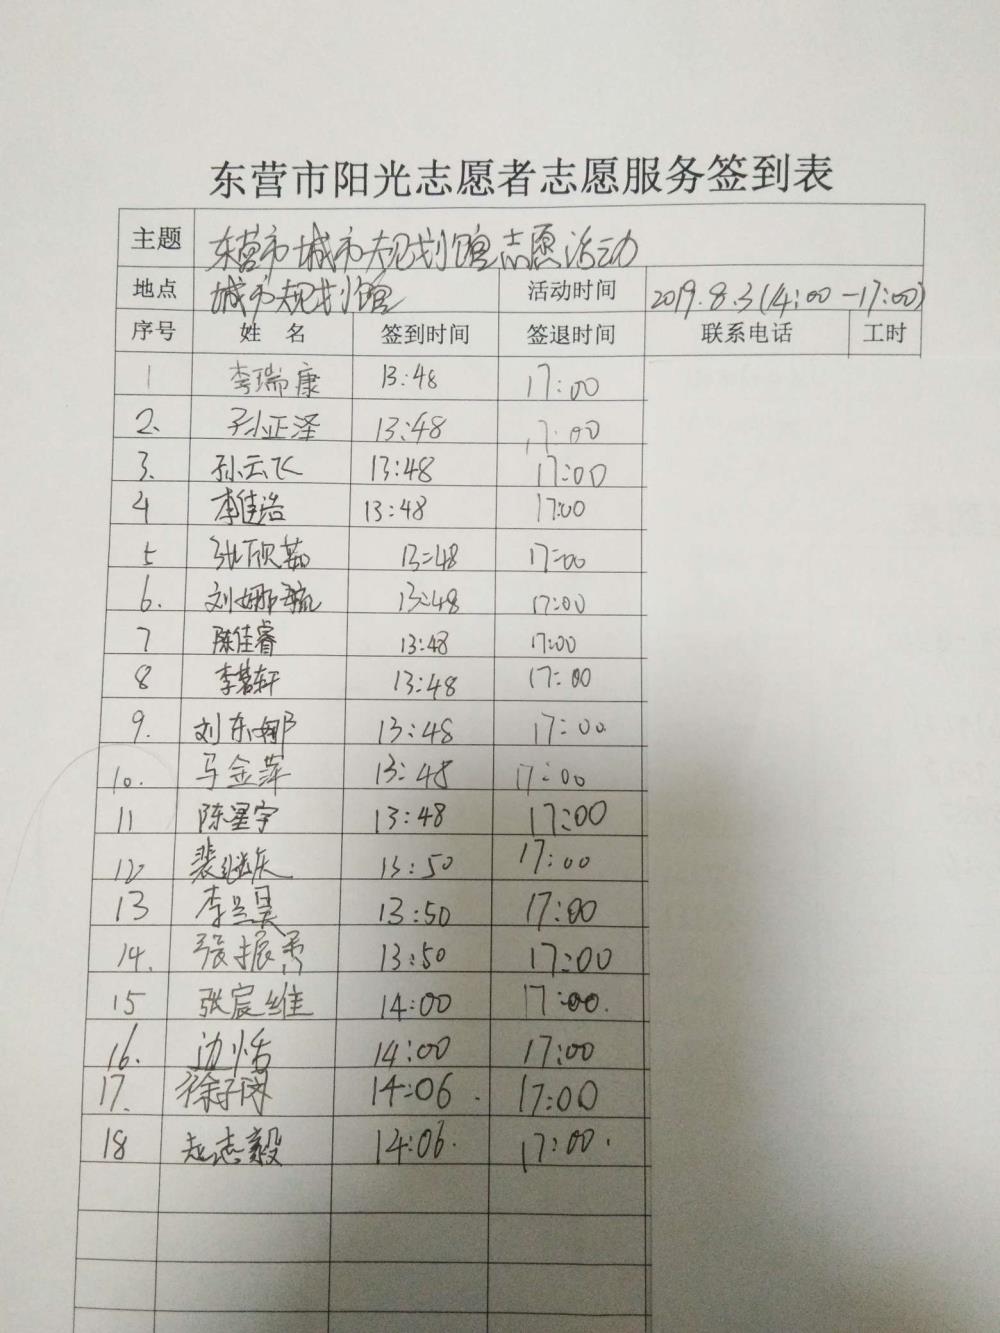 东营市阳光志愿者志愿服务签到表
主题 东营市城市规划馆志愿活动
地点 城市规划馆 活动时间 2019.8.3(14:00-17:00)
序号 姓名 签到时间 签退时间 联系电话 工时
1 李瑞康 13:48 17:00
2. 孙正泽 13:48 17:00
3. 孙云飞 13:48 17:00
4 李佳浩 13:48 17:00
5 张欣茹 13:48 17:00
6. 刘娜 13:48 17:00
7 陈佳睿 13:48 17:00
8 李茗轩 13:48 17:00
9. 刘东娜 13:48 17:00
10. 马金萍 13:48 17:00
11 陈星宇 13:48 17:00
12 裴继 13:50 17:00
13 李昊 13:50 17:00
14. 张振 13:50 17:00
15 张宸维 14:00 17:00.
16. 边恬 14:00 17:00
17. 徐子 14:06. 17:00
18 赵志毅 14:06. 17:00.